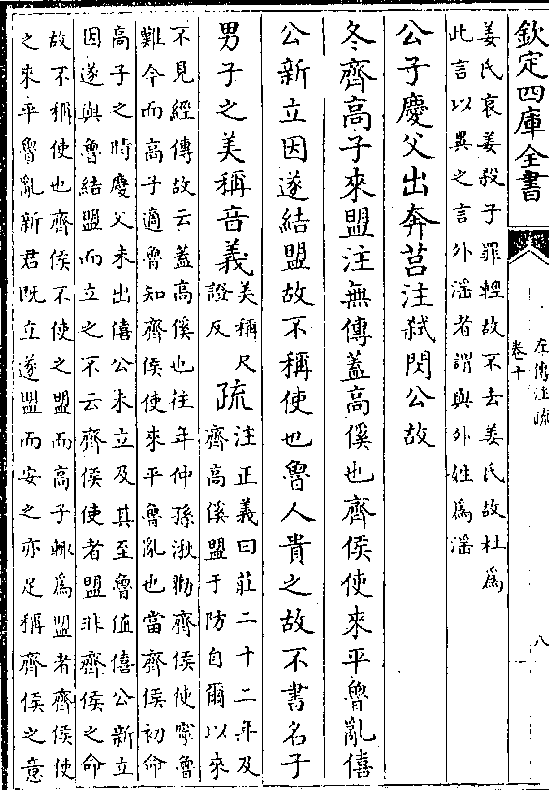 欽定四庫全書
左傳注疏
卷十
八
姜氏哀姜殺子罪輕故不去姜氏故杜為
此言以異之言外淫者謂與外姓為淫
公子慶父出奔莒注弑閔公故
冬齊高子來盟注無傳蓋高傒也齊侯使來平魯亂僖
公新立因遂結盟故不稱使也魯人貴之故不書名子
男子之美稱音義
美稱尺
證反
疏
注正義曰莊二十二年及
齊高傒盟于防自爾以來
不見經傳故云蓋高傒也往年仲孫湫勸齊侯使寧魯
難今而高子適魯知齊侯使來平魯亂也當齊侯初命
高子之時慶父未出僖公未立及其至魯值僖公新立
因遂與魯結盟而立之不云齊侯使者盟非齊侯之命
故不稱使也齊侯不使之盟而高子輒為盟者齊侯使
之來平魯亂新君既立遂盟而安之亦足稱齊侯之意